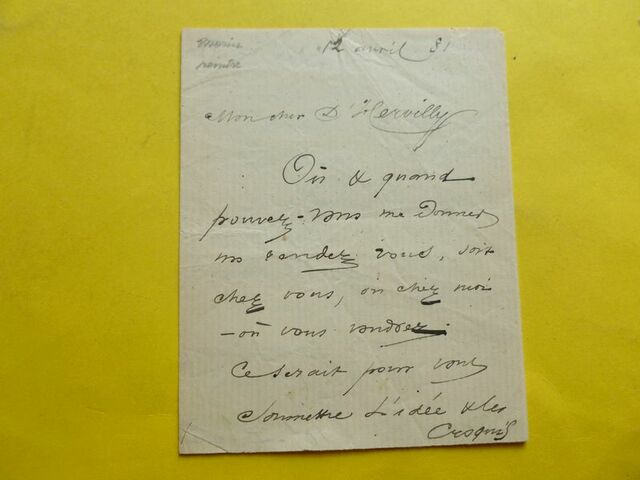 12 avril 81
Mon cher D'Hervilly
Où & quand
pouvez-vous me donner
un rendez vous, soit
chez vous, ou chez moi
- où vous voudrez.
Ce serait pour vous
soumettre l'idée & les
croquis